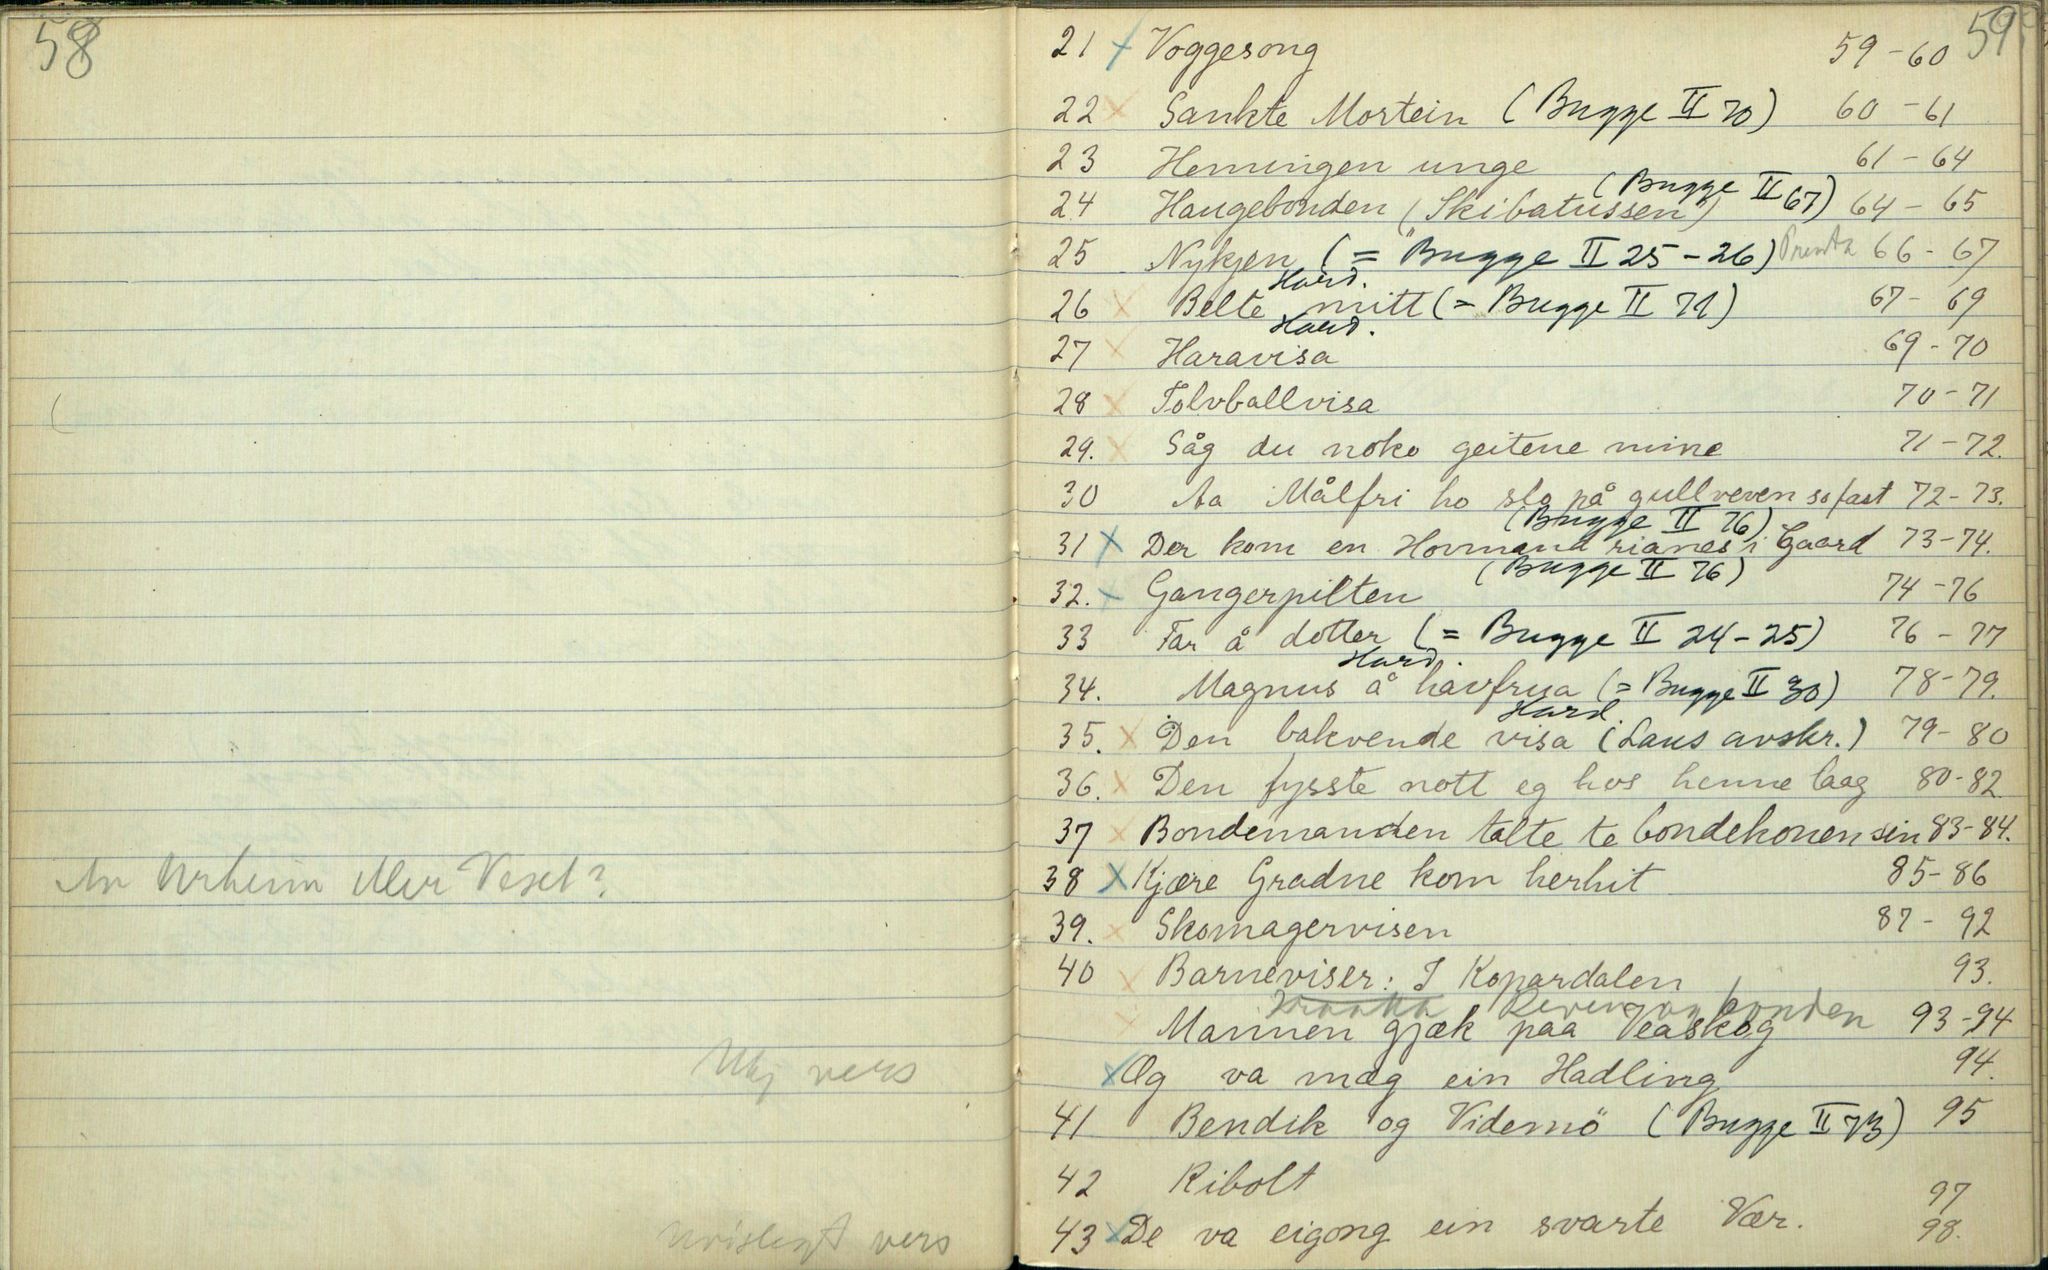 58
eller Veset?
vers
vers
59
21 x Voggesong 59-60
22 x Sankte Mortein (Bugge II 70) 60-61
23 Hemingen unge 61-64
24 Haugebonden (Skibatussen) (Bugge II 67) 64-65
25 Nykjen (= Bugge II 25-26) Prenta 66-67
Hard.
26 x Belte mitt (= Bugge II 71) 67-69
Hard.
27 x Haravisa 69-70
28 x Tolvballvisa 70-71
29. x Såg du noko geitene mine 71-72.
30 Aa Målfri ho slo på gullveven so fast 72-73.
(Bugge II 76)
31 x Der kom en Hovmand rianes i Gaard 73-74.
(Bugge II 76)
32. x Gangerpilten 74-76
33 Far å dotter (= Bugge II 24-25) 76-77
Hard.
34. Magnus å havfrua (= Bugge II 30) 78-79.
Hard.
35. x Den bakvende visa (Laus avskr.) 79-80
36. x Den fysste nott eg hos henne laag 80-82
37 x Bondemanden talte te bondekonen sin 83-84.
38 x Kjære Gradne kom herhit 85-86
39. x Skomagervisen 87-92
40 x Barneviser: I Kopardalen 93.
Reven og bonden
x Mannen gjæk paa Veaskog 93-94
x Og va mæg ein Hadling 94.
41 Bendik og Videmö (Bugge II 73) 95
42 Ribolt 97
43 x De va eigong ein svarte Vær. 98.